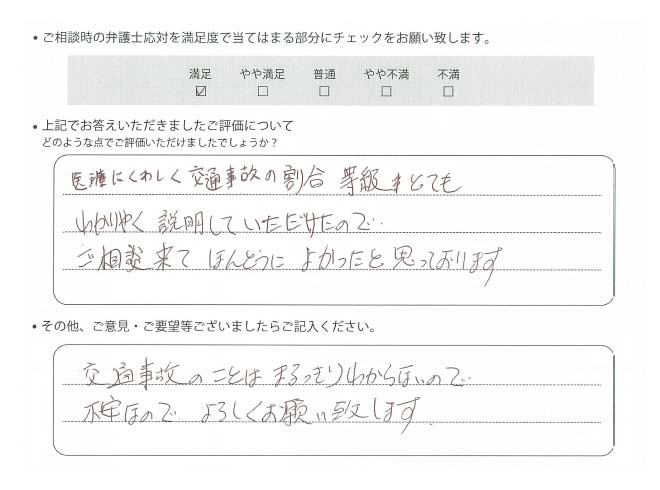 • ご相談時の弁護士応対を満足度で当てはまる部分にチェックをお願い致します。
満足 やや満足 普通 やや不満 不満
☑ ☐ ☐ ☐ ☐
• 上記でお答えいただきましたご評価について
どのような点でご評価いただけましたでしょうか？
医療にくわしく 交通事故の割合 等級 とても
わかりやく 説明していただけたので‥
ご相談 来て ほんとうに よかったと思っております
• その他、ご意見・ご要望等ございましたらご記入ください。
交通事故のことは まるっきりわからないので‥
不安なので よろしくお願い致します